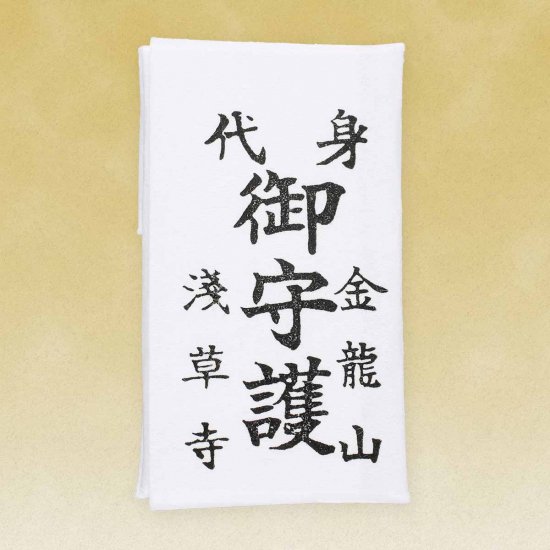 身代
御守護
金龍山
淺草寺